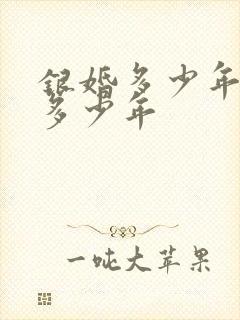 銀婚多少年
多少年
一吨大苹果